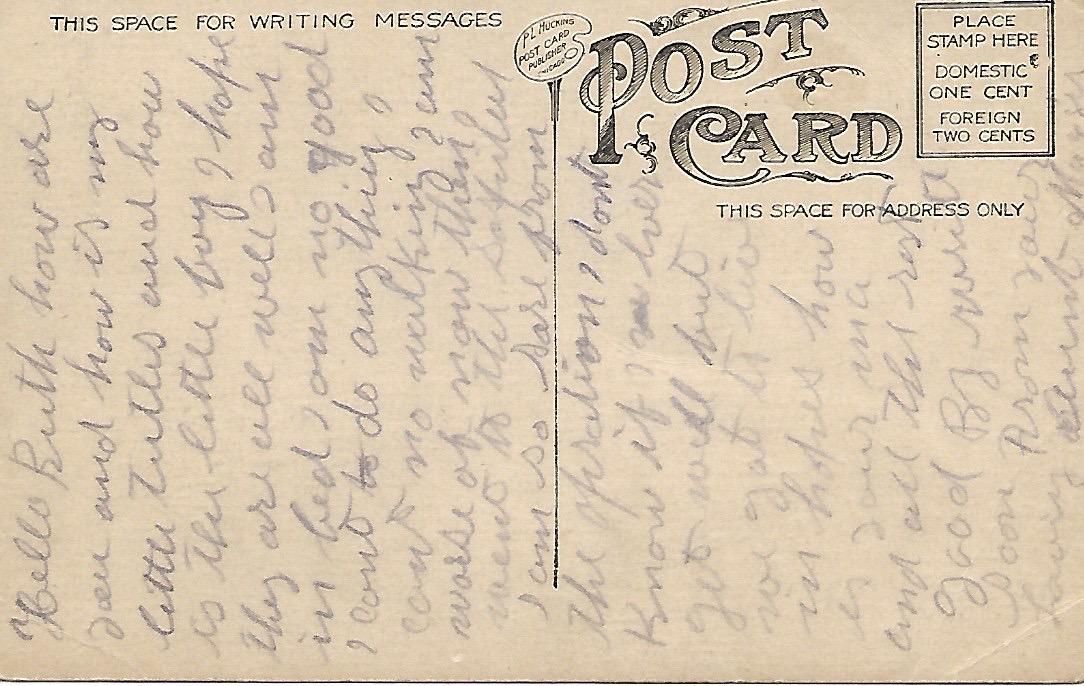 THIS SPACE FOR WRITING MESSAGES
P.L. HUCKINS
POST CARD
PUBLISHER
CHICAGO
POST
CARD
PLACE
STAMP HERE
DOMESTIC
ONE CENT
FOREIGN
TWO CENTS
THIS SPACE FOR ADDRESS ONLY
Hello Ruth how are
you and how is my
little and how
is the little boy I hope
they are all well I am
in bed I am no good
I cant do any thing I
cant no walking I am
worse of now then I
went to the
I am so sare from
the opration I dont
know if I ever
get well but
we to live
in hopes how
is your ma
and all the rest
Good By write
Soon From your
loving